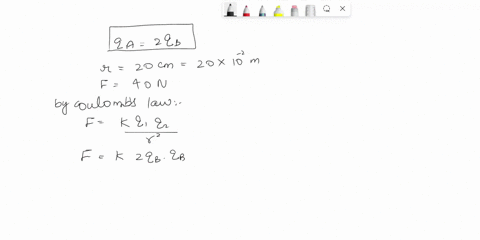 qA = 2qB
r = 20 cm = 20 × 10⁻² m
F = 40 N
by coulombs law:-
F = K q₁ q₂
r²
F = K 2qB . qB